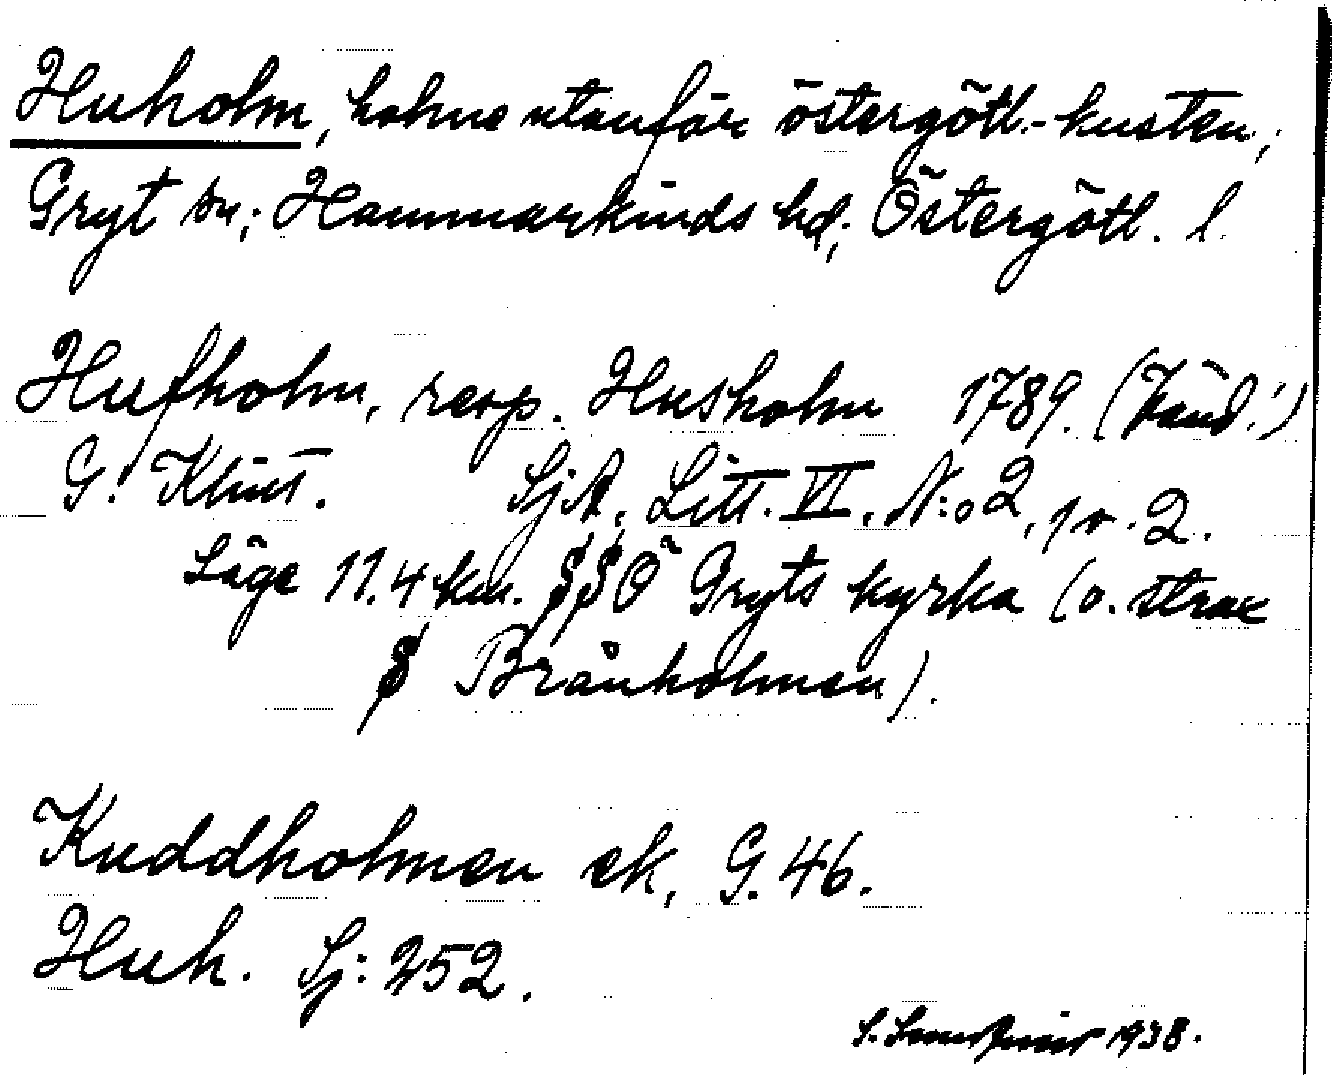 Huholm, holme utanför östergötl.-kusten;
Gryt sn; Hammarkinds hd; Östergötl. l.
Hufholm, resp. Husholm 1789. (Fänd.!)
G. Klint. SjA, Litt. VI. N:o 2, p. 2.
Läge 11.4 km. SSÖ Gryts kyrka (o. strax
S Brånholmen).
Kuddholmen ek, G. 46.
Huh. Sj: 252.
S. 1938.